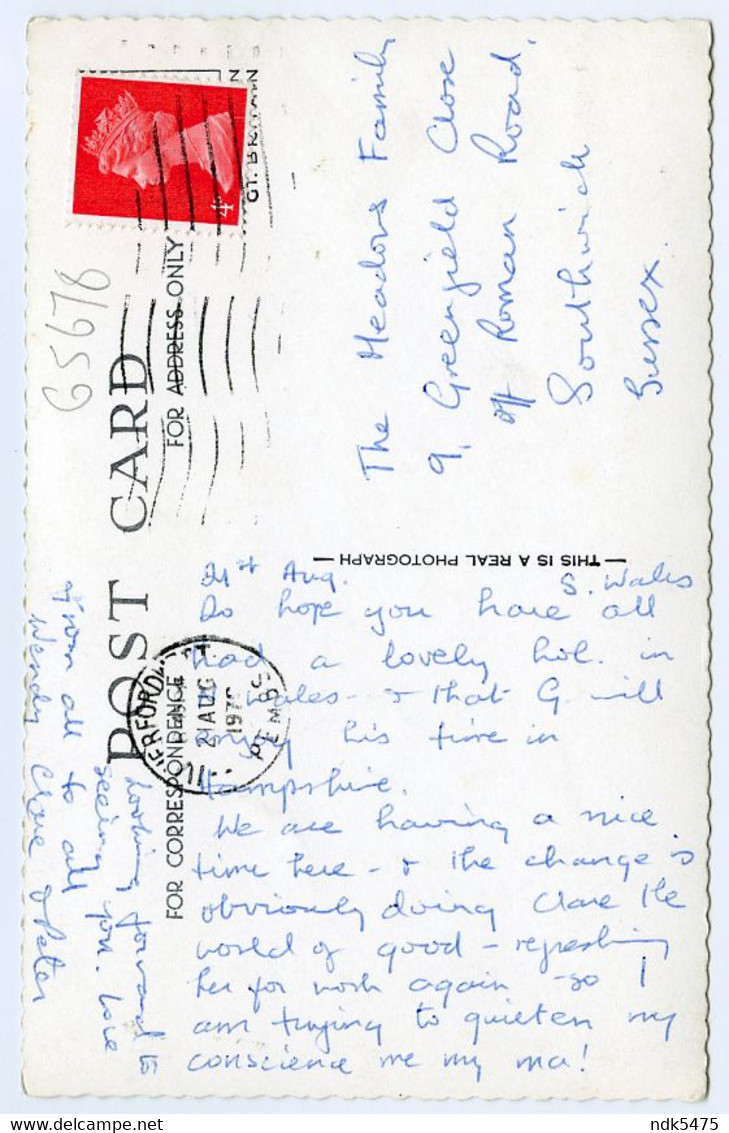 GT. BRITAIN
4D
65678
POST CARD
FOR ADDRESS ONLY
The Meadows Family
9, Greenfield Close
off Roman Road,
Southwick
Sussex.
THIS IS A REAL PHOTOGRAPH
FOR CORRESPONDENCE
21 AUG
PEMBS
21st Aug. S. Wales
Do hope you have all
had a lovely hol. in
Wales - & that G. will
enjoy his time in
Hampshire.
We are having a nice
time here - & the change is
obviously doing Clare the
world of good - refreshing
her for work again - so I
am trying to quieten my
conscience re my ma!
Looking forward to
seeing you. Love
from all to all
Wendy Clare & Peter
www.delcampe.net
ndk5475